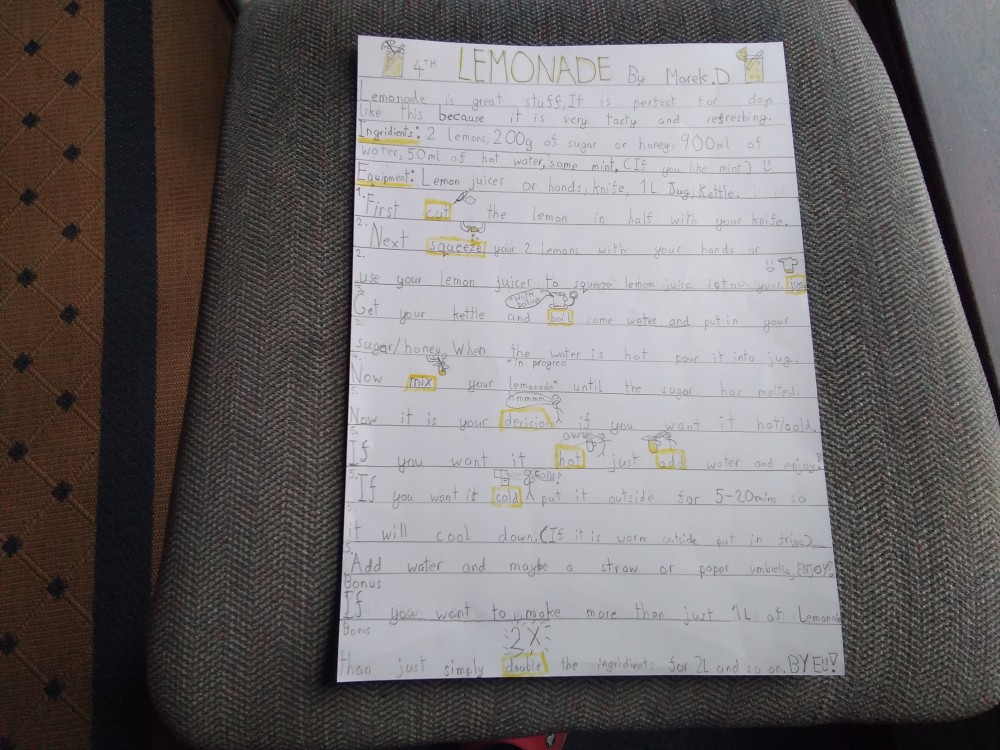 4TH LEMONADE By Marek.D
Lemonade is great stuff, It is perfect for days
like this because it is very tasty and refreshing.
Ingridients: 2 lemons, 200g of sugar or honey, 900ml of
water, 50ml of hot water, some mint, (If you like mint)
Equipment: Lemon juicer or hands, knife, 1L Jug, Kettle.
1. First cut the lemon in half with your knife.
2. Next squeeze your 2 lemons with your hands or
2. use your lemon juicer to squeeze lemon juice into your jug
3. Get your kettle and boil some water and put in your
3. sugar/honey. When the water is hot pour it into jug.
"in progres
4. Now mix your lemonade" until the sugar has melted.
hmmmm
5. Now it is your decision if you want it hot/cold.
oww
5. If you want it hot just add water and enjoy!
cold!
5. If you want it cold put it outside for 5-20mins so
5. it will cool down. (If it is warm outside put in frige)
5. Add water and maybe a straw or paper umbrella, ENJOY!
Bonus
If you want to make more than just 1L of Lemonade
Bonus
2X
than just simply double the ingridients for 2L and so on. BYE!!